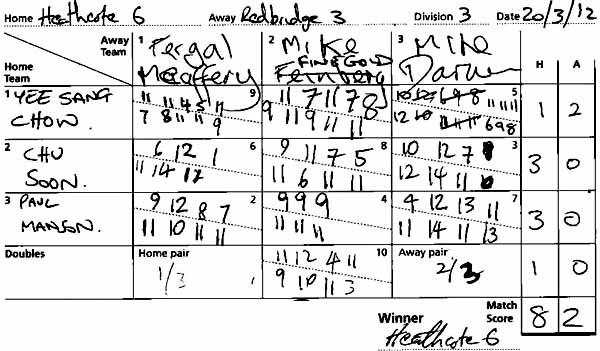 Home Heathcote 6 Away Redbridge 3 Division 3 Date 20/3/12
Away Team 1 Fergal 2 Mike 3 Mike H A
Home Team Mcaffery FINEGOLD Feinberg
1 YEE SANG 9 5
11 11 4 5 11 11 7 11 7 8 1 2
CHOW 7 8 11 11 9 9 11 9 11 11 12 10 6 9 8
2 CHU 6 12 1 6 9 11 7 5 8 10 12 7 3 3 0
SOON. 11 14 12 11 6 11 11 12 14 11
3 PAUL 9 12 8 7 2 9 9 9 4 4 12 13 11 7 3 0
MANSON. 11 10 11 11 11 11 11 11 14 11 13
Doubles Home pair 11 12 4 11 10 Away pair 1 0
1/3 9 10 11 3 2/3
Winner Match Score 8 2
Heathcote 6